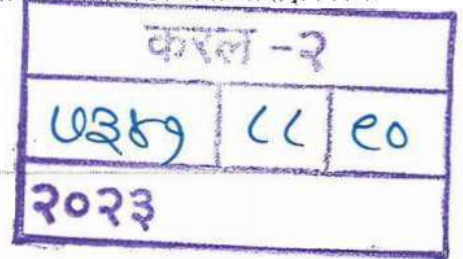 करल -२
७३४१ ८८ ९०
२०२३